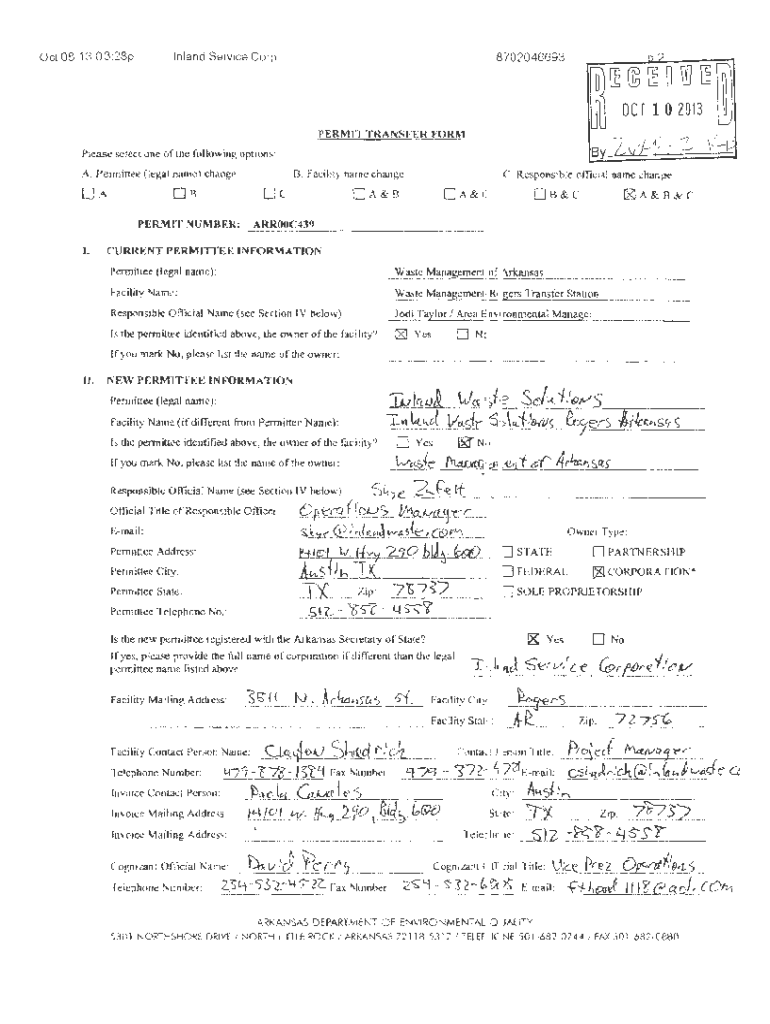 Oct 08 13 03:28p Inland Service Corp 8702046693 p.2
RECEIVED
OCT 10 2013
By
PERMIT TRANSFER FORM
Please select one of the following options:
A. Permittee (legal name) change B. Facility name change C. Responsible official name change
☐ A ☐ B ☐ C ☐ A & B ☐ A & C ☐ B & C ☒ A & B & C
PERMIT NUMBER: ARR00C439
I. CURRENT PERMITTEE INFORMATION
Permittee (legal name): Waste Management of Arkansas
Facility Name: Waste Management-Rogers Transfer Station
Responsible Official Name (see Section IV below) Jodi Taylor / Area Environmental Manage
Is the permittee identified above, the owner of the facility? ☒ Yes ☐ N
If you mark No, please list the name of the owner:
II. NEW PERMITTEE INFORMATION
Permittee (legal name): Inland Waste Solutions
Facility Name (if different from Permittee Name): Inland Waste Solutions, Rogers Arkansas
Is the permittee identified above, the owner of the facility? ☐ Yes ☒ No
If you mark No, please list the name of the owner: Waste Management of Arkansas
Responsible Official Name (see Section IV below) Skye Zufelt
Official Title of Responsible Officer: Operations Manager
E-mail: skye@inlandwaste.com Owner Type:
Permittee Address: 14101 W. Hwy 290 bldg 600 ☐ STATE ☐ PARTNERSHIP
Permittee City: Austin TX ☐ FEDERAL ☒ CORPORATION*
Permittee State: TX Zip: 78737 ☐ SOLE PROPRIETORSHIP
Permittee Telephone No.: 512-858-4558
Is the new permittee registered with the Arkansas Secretary of State? ☒ Yes ☐ No
If yes, please provide the full name of corporation if different than the legal
permittee name listed above Inland Service Corporation
Facility Mailing Address: 3511 N. Arkansas St. Facility City: Rogers
Facility State: AR Zip: 72756
Facility Contact Person Name: Clayton Shedrich Contact Person Title: Project Manager
Telephone Number: 479-878-1384 Fax Number 479-872-478 E-mail: cshedrich@inlandwaste.c
Invoice Contact Person: City: Austin
Invoice Mailing Address 14101 w. Hwy 290, Bldg 600 State: TX Zip: 78737
Invoice Mailing Address: Telephone: 512-858-4558
Cognizant Official Name: David Perry Cognizant Official Title: Vice Prez Operations
Telephone Number: 254-532-4522 Fax Number 254-532-6 E-mail: fthood1118@aol.com
ARKANSAS DEPARTMENT OF ENVIRONMENTAL QUALITY
5301 NORTHSHORE DRIVE / NORTH LITTLE ROCK / ARKANSAS 72118-5317 / TELEPHONE 501-682-0744 / FAX 501-682-0880